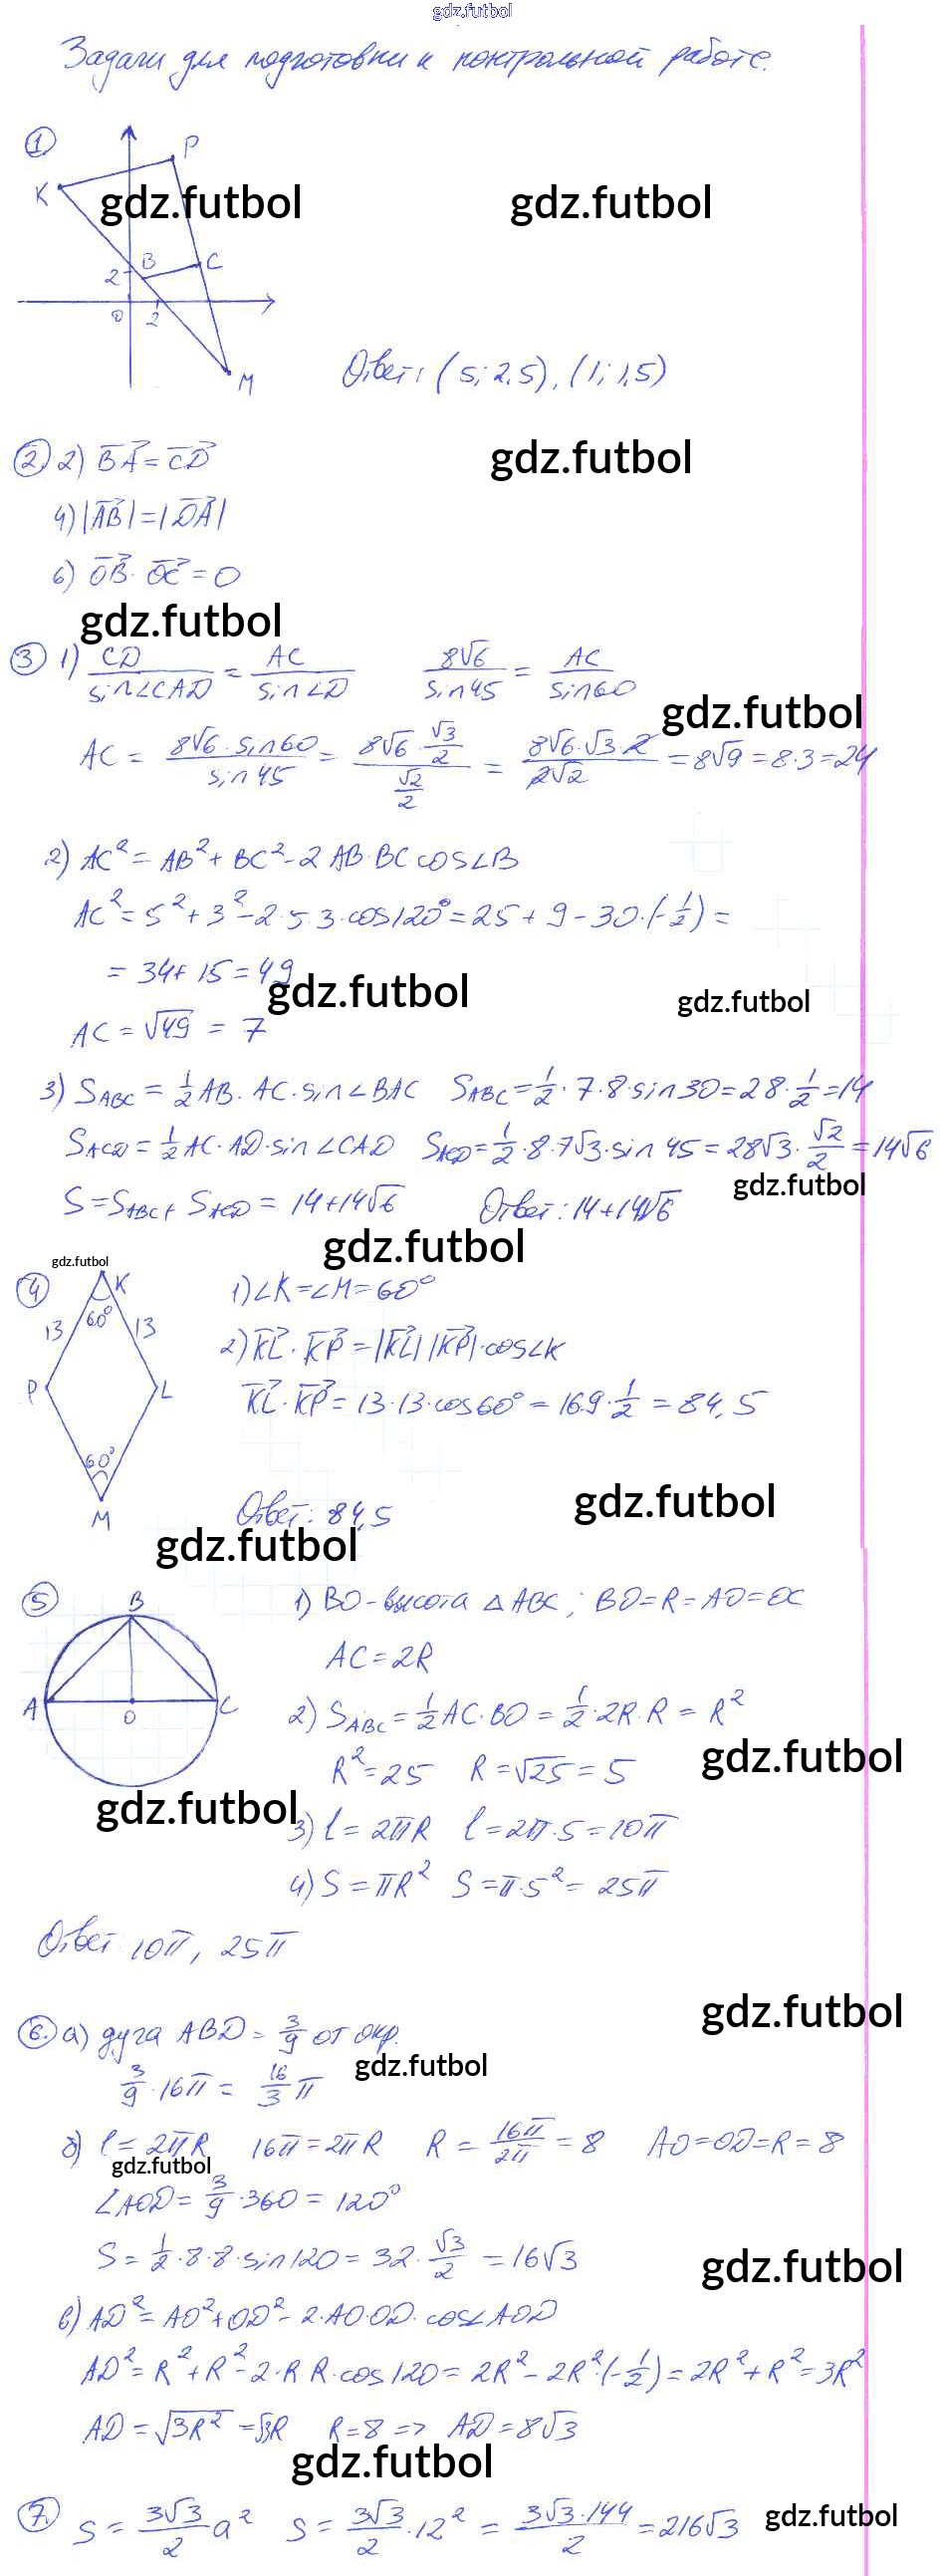 gdz.futbol
Задачи для подготовки к контрольной работе.
① P
K
gdz.futbol gdz.futbol
B C
2
0 2
M
Ответ: (5; 2,5), (1; 1,5)
② 2) BA⃗ = CD⃗
gdz.futbol
4) |AB⃗| = |DA⃗|
6) OB⃗ · OC⃗ = 0
gdz.futbol
③ 1) CD/sin∠CAD = AC/sin∠D 8√6/sin45 = AC/sin60
gdz.futbol
AC = 8√6·sin60/sin45 = 8√6·√3/2/√2/2 = 8√6·√3·2/2√2 = 8√9 = 8·3 = 24
2) AC² = AB² + BC² - 2AB·BC cos∠B
AC² = 5² + 3² - 2·5·3·cos120° = 25 + 9 - 30·(-1/2) =
= 34 + 15 = 49
gdz.futbol gdz.futbol
AC = √49 = 7
3) S_ABC = 1/2 AB·AC·sin∠BAC S_ABC = 1/2·7·8·sin30 = 28·1/2 = 14
S_ACD = 1/2 AC·AD·sin∠CAD S_ACD = 1/2·8·7√3·sin45 = 28√3·√2/2 = 14√6
gdz.futbol
S = S_ABC + S_ACD = 14+14√6 Ответ: 14+14√6
gdz.futbol
gdz.futbol
④ K 1) ∠K = ∠M = 60°
60°
13 13 2) KL⃗ · KP⃗ = |KL⃗| |KP⃗|·cos∠K
P L KL⃗·KP⃗ = 13·13·cos60° = 169·1/2 = 84,5
60°
M Ответ: 84,5
gdz.futbol
gdz.futbol
⑤ B 1) BO - высота △ABC; BO = R = AO = OC
AC = 2R
A O C 2) S_ABC = 1/2 AC·BO = 1/2·2R·R = R²
gdz.futbol
R² = 25 R = √25 = 5
gdz.futbol
3) l = 2πR l = 2π·5 = 10π
4) S = πR² S = π·5² = 25π
Ответ 10π, 25π
gdz.futbol
⑥. а) дуга ABD = 3/9 от окр.
gdz.futbol
3/9·16π = 16/3 π
б) l = 2πR 16π = 2πR R = 16π/2π = 8 AO = OD = R = 8
gdz.futbol
∠AOD = 3/9·360 = 120°
S = 1/2·8·8·sin120 = 32·√3/2 = 16√3
gdz.futbol
в) AD² = AO² + OD² - 2·AO·OD·cos∠AOD
AD² = R² + R² - 2·R·R·cos120 = 2R² - 2R²·(-1/2) = 2R² + R² = 3R²
AD = √3R² = √3R R = 8 => AD = 8√3
gdz.futbol
⑦. S = 3√3/2 a² S = 3√3/2·12² = 3√3·144/2 = 216√3
gdz.futbol